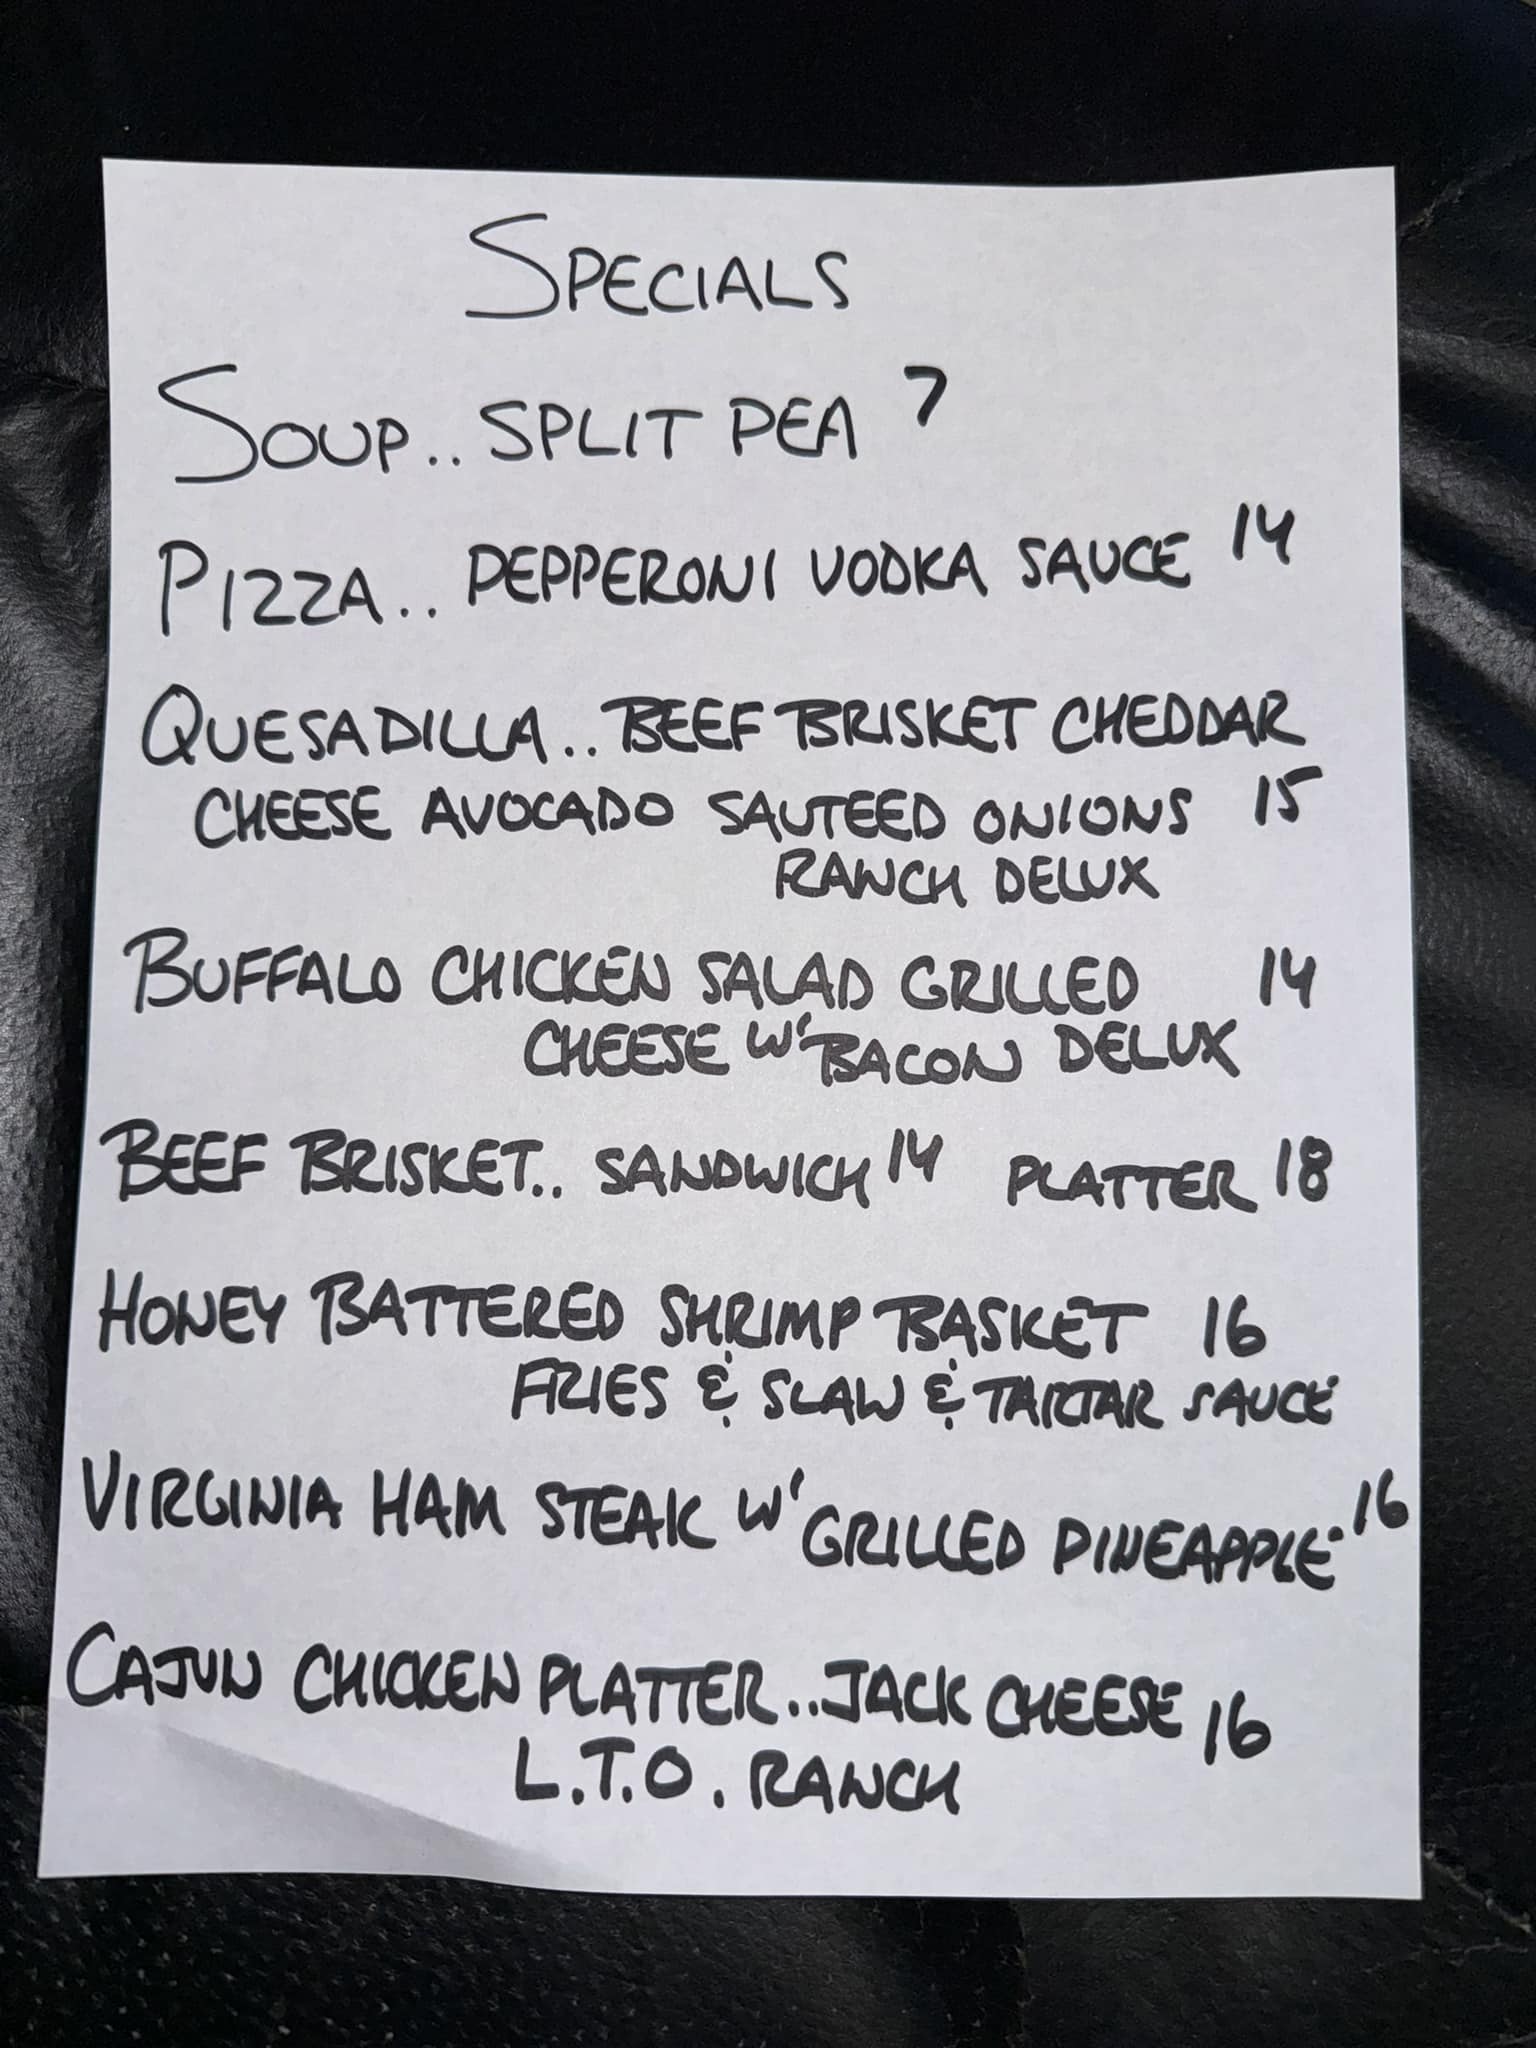 SPECIALS
SOUP.. SPLIT PEA 7
PIZZA.. PEPPERONI VODKA SAUCE 14
QUESADILLA.. BEEF BRISKET CHEDDAR
CHEESE AVOCADO SAUTEED ONIONS 15
RANCH DELUX
BUFFALO CHICKEN SALAD GRILLED 14
CHEESE W' BACON DELUX
BEEF BRISKET.. SANDWICH 14 PLATTER 18
HONEY BATTERED SHRIMP BASKET 16
FRIES & SLAW & TARTAR SAUCE
VIRGINIA HAM STEAK W' GRILLED PINEAPPLE 16
CAJUN CHICKEN PLATTER.. JACK CHEESE 16
L.T.O. RANCH